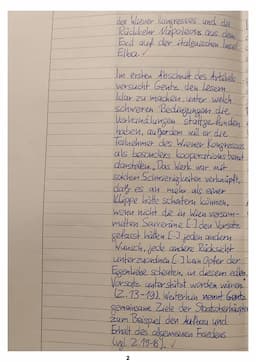 der Wiener Kongresses und die
Rückkehr Napoleons aus dem
Exil auf der italienischen Insel
Elba. ✓
Im ersten Abschnitt des Artikels
versucht Gentz den Lesern
klar zu machen, unter welch
schweren Bedingungen die
Verhandlungen stattgefunden
haben, außerdem will er die
Teilnehmer des Wiener Kongresses
als besonders kooperationsbereit
darstellen. Das Werk war mit
solchen Schwierigkeiten verknüpft,
daß es an mehr als einer
Klippe hätte scheitern können,
wenn nicht die in Wien versam-
melten Souveräne [.] den Vorsatz
gefasst hätten [.] jeden anderen
Wunsch, jede andere Rücksicht
unterzuordnen [.] kein Opfer der
Eigenliebe scheuten, in diesem edlen
Vorsatz unterstützt worden wären
(Z. 13-19). Weiterhin nennt Gentz
gemeinsame Ziele der Staatsoberhäupter
zum Beispiel den Aufbau und
Erhalt des allgemeinen Friedens
(vgl. Z. 17f).
2